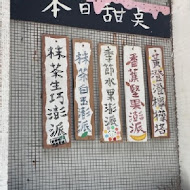 本日甜点
抹茶生巧澎派
抹茶白玉澎派
季節水果澎派
香蕉堅果澎派
黃澄澄檸檬塔